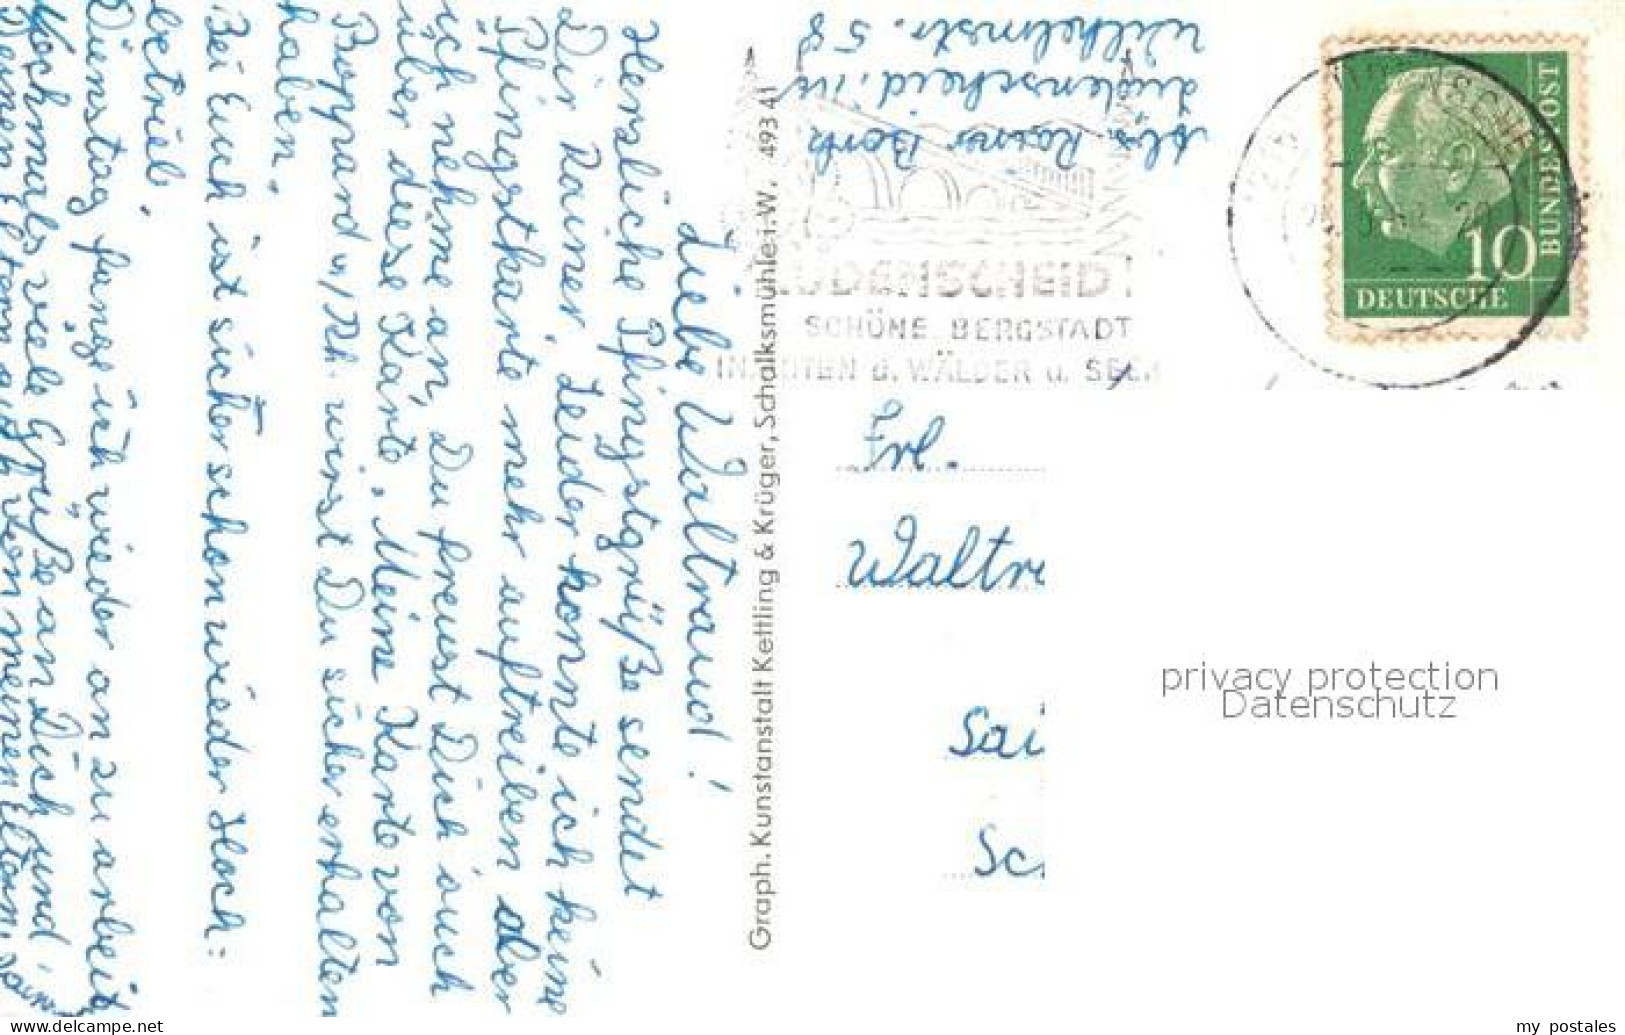 Liebe Waltraud!
Herzliche Pfingstgrüße sendet
Dir Rainer. Leider konnte ich keine
Pfingstkarte mehr auftreiben aber
ich nehme an, Du freust Dich auch
über diese Karte. Meine Karte von
Boppard a/Rh. wirst Du sicher erhalten
haben.
Bei Euch ist sicher schon wieder Hoch-
betrieb.
Dienstag fange ich wieder an zu arbeiten
Nochmals viele Grüße an Dich und
Deinen Eltern auch von meinen Eltern.
Graph. Kunstanstalt Kettling & Krüger, Schalksmühle i. W. 493 41
Abs. Rainer Bork
Lüdenscheid i. W
Wilhelmstr. 58
LÜDENSCHEID
SCHÖNE BERGSTADT
WÄLDER u. SEEN
10
DEUTSCHE
BUNDESPOST
Frl.
Waltr
Sai
Sc
privacy protection
Datenschutz
www.delcampe.net
my_postales